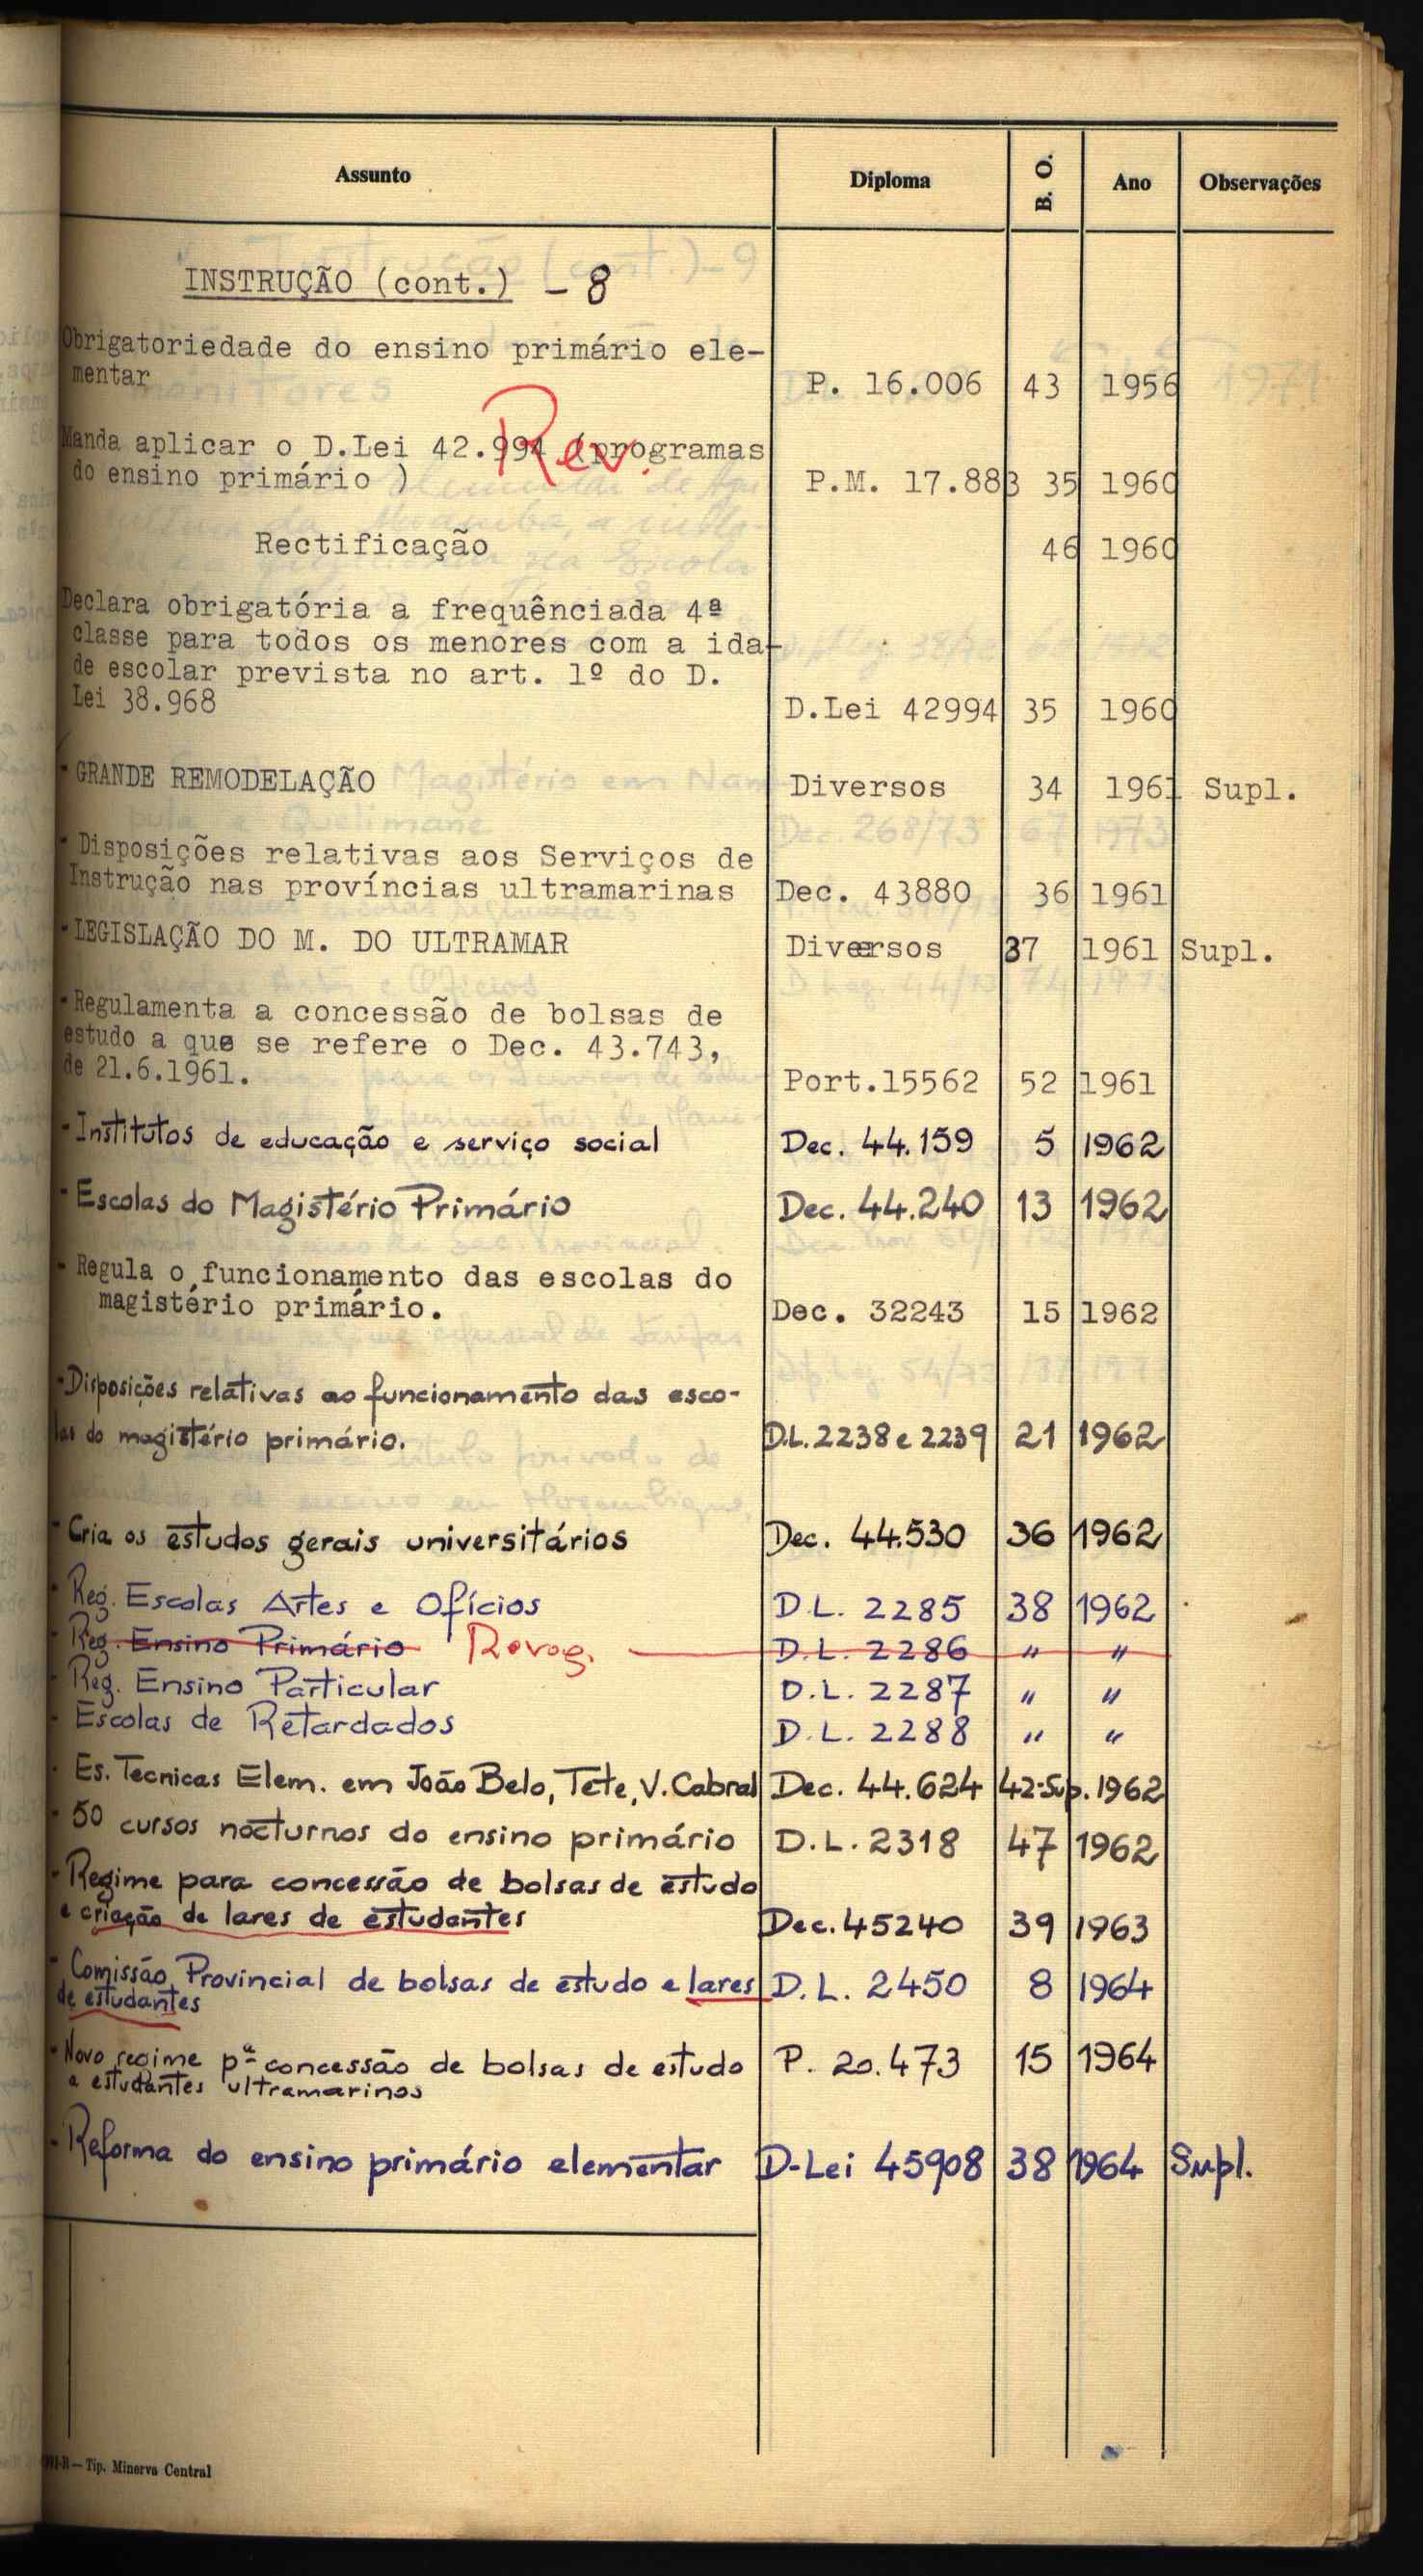 Assunto Diploma B. O. Ano Observações
INSTRUÇÃO (cont.) - 8
Obrigatoriedade do ensino primário ele-
mentar P. 16.006 43 1956
Manda aplicar o D.Lei 42.994 (programas
Rev.
do ensino primário ) P.M. 17.883 35 1960
Rectificação 46 1960
Declara obrigatória a frequênciada 4ª
classe para todos os menores com a ida-
de escolar prevista no art. 1º do D.
Lei 38.968 D.Lei 42994 35 1960
- GRANDE REMODELAÇÃO Diversos 34 1961 Supl.
- Disposições relativas aos Serviços de
Instrução nas províncias ultramarinas Dec. 43880 36 1961
- LEGISLAÇÃO DO M. DO ULTRAMAR Diversos 37 1961 Supl.
- Regulamenta a concessão de bolsas de
estudo a que se refere o Dec. 43.743,
de 21.6.1961. Port.15562 52 1961
- Institutos de educação e serviço social Dec. 44.159 5 1962
- Escolas do Magistério Primário Dec. 44.240 13 1962
- Regula o funcionamento das escolas do
magistério primário. Dec. 32243 15 1962
- Disposições relativas ao funcionamento das esco-
las do magistério primário. D.L. 2238 e 2239 21 1962
- Cria os estudos gerais universitários Dec. 44.530 36 1962
- Reg. Escolas Artes e Ofícios D.L. 2285 38 1962
- Reg. Ensino Primário Revog. D.L. 2286 " "
- Reg. Ensino Particular D.L. 2287 " "
- Escolas de Retardados D.L. 2288 " "
- Es. Tecnicas Elem. em João Belo, Tete, V. Cabral Dec. 44.624 42-Sup. 1962
- 50 cursos nocturnos do ensino primário D.L. 2318 47 1962
- Regime para concessão de bolsas de estudo
e criação de lares de estudantes Dec. 45240 39 1963
- Comissão Provincial de bolsas de estudo e lares D.L. 2450 8 1964
de estudantes
- Novo regime pª concessão de bolsas de estudo P. 20.473 15 1964
a estudantes ultramarinos
- Reforma do ensino primário elementar D-Lei 45908 38 1964 Supl.
Tip. Minerva Central